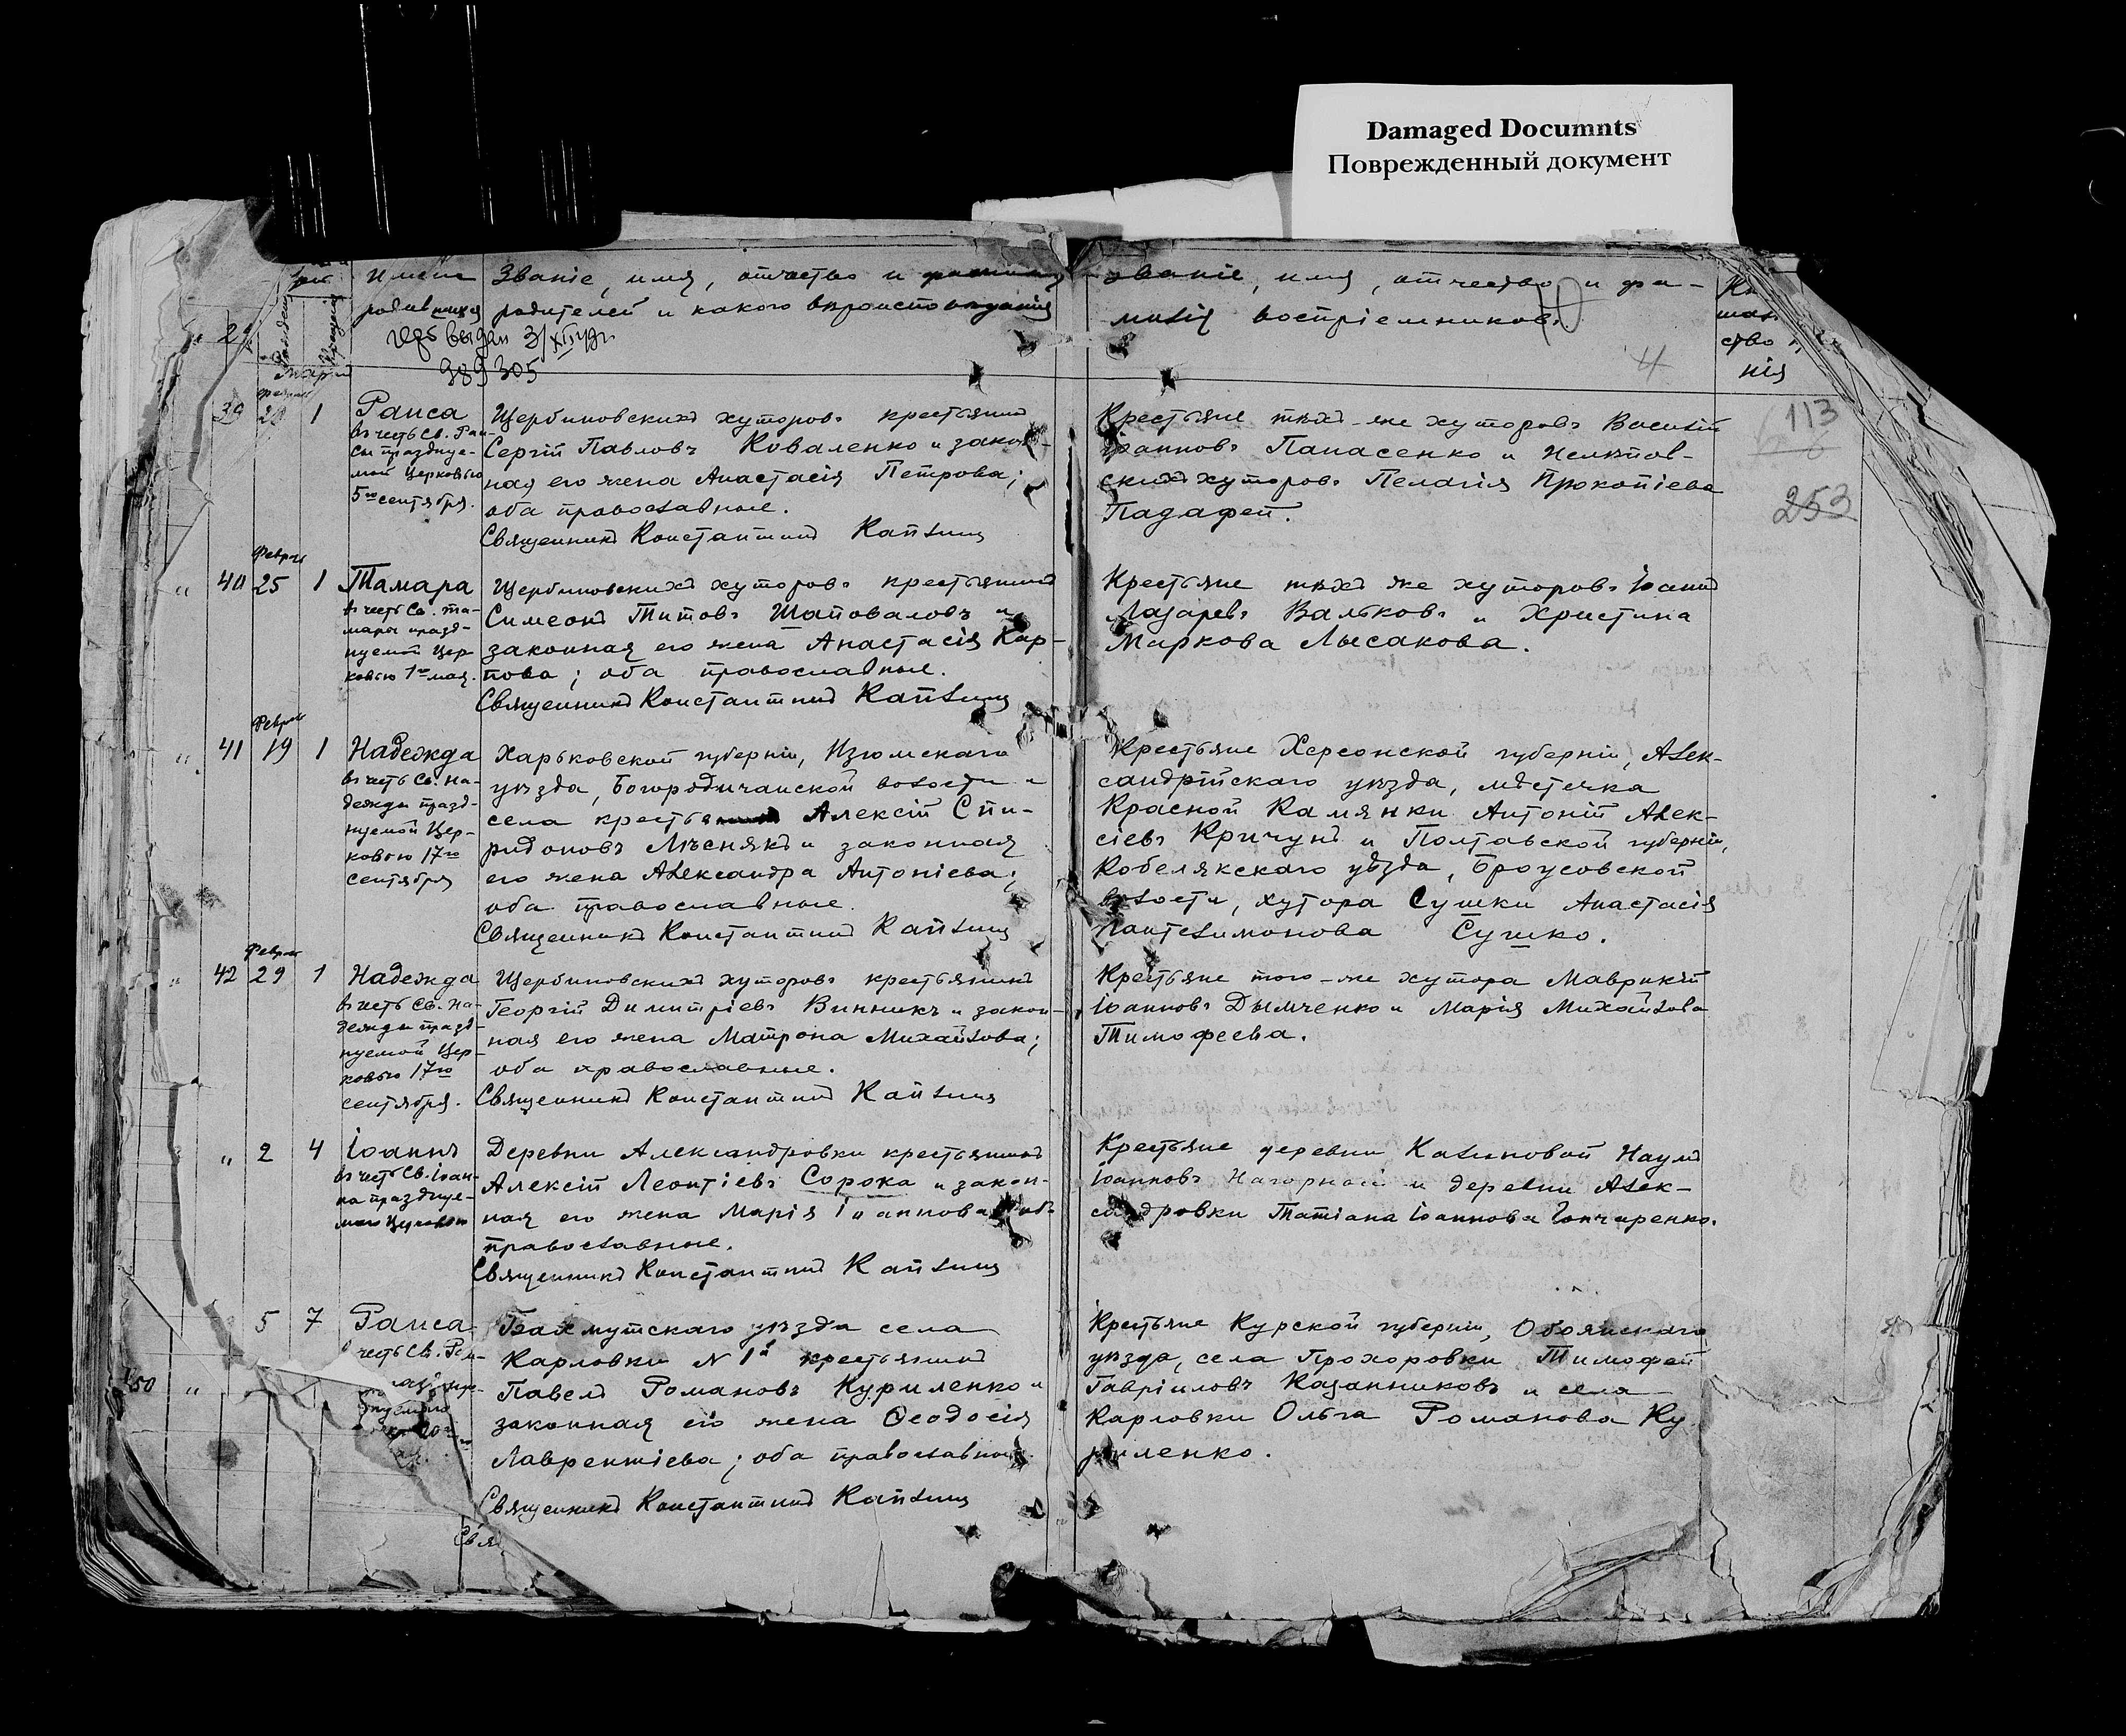 Damaged Documnts
Поврежденный документ
Званіе, имя, отчество и
званіе, имя, отчество и фа-
родителей и какого вѣроисповѣданія
милія воспріемниковъ.
389305
113
253
39 1 Раиса
въ честь св. Раи-
сы праздnуе-
мой Церковью
5го сентября.
Щербиновскихъ хуторовъ крестьянинъ
Сергій Павловъ Коваленко и закон-
ная его жена Анастасія Петрова;
оба православные.
Священникъ Константинъ
Крестьяне тѣхъ-же хуторовъ Василій
Іоанновъ Панасенко и Нелѣпов-
скихъ хуторовъ Пелагія Прокопіева
Февраля
" 40 25 1 Тамара
въ честь Св. Та-
мары празд-
нуемой Цер-
ковью 1го мая.
Щербиновскихъ хуторовъ крестьянинъ
Симеонъ Титовъ Шаповаловъ и
законная его жена Анастасія Кар-
пова; оба православные.
Священникъ Константинъ
Крестьяне тѣхъ же хуторовъ Іоаннъ
Лазаревъ Вальковъ и Христина
Маркова Лысакова.
Февраля
" 41 19 1 Надежда
въ честь Св. На-
дежды празд-
нуемой Цер-
ковью 17го
сентября
Харьковской губерніи, Изюмскаго
уѣзда, Богородичанской волости и
села Алексій Спи-
ридоновъ Лѣснякъ и законная
его жена Александра Антоніева;
оба православные.
Священникъ Константинъ
Крестьяне Херсонской губерніи, Алек-
сандрійскаго уѣзда, мѣстечка
Красной Камянки Антоній Алек-
сіевъ Кричунъ и Полтавской губерніи,
Кобелякскаго уѣзда, Броусовской
волости, хутора Сушки Анастасія
Пантелимонова Сушко.
Февраля
" 42 29 1 Надежда
въ честь Св. На-
дежды празд-
нуемой Цер-
ковью 17го
сентября.
Щербиновскихъ хуторовъ крестьянинъ
Георгій Димитріевъ Винникъ и закон-
ная его жена Матрона Михайлова;
оба православные.
Священникъ Константинъ
Крестьяне того-же хутора Маврикій
Іоанновъ Дымченко и Марія Михайлова
Тимофеева.
" 2 4 Іоаннъ
въ честь Св. Іоан-
на празднуе-
маго Церковью
Деревни Александровки крестьянинъ
Алексій Леонтіевъ Сорока и закон-
ная его жена Марія Іоаннова; оба
православные.
Священникъ Константинъ
Крестьяне деревни Калиновой Наумъ
Іоанновъ Нагорный и деревни Алек-
сандровки Татіана Іоаннова Гончаренко.
5 7 Раиса
честь Св. Раи-
Бахмутскаго уѣзда села
Карловки N 1й крестьянинъ
Павелъ Романовъ Куриленко и
законная его жена Ѳеодосія
Лаврентіева; оба православные.
Священникъ Константинъ
Крестьяне Курской губерніи, Обоянскаго
уѣзда, села Прохоровки Тимофей
Гавріиловъ Казанниковъ и села
Карловки Ольга Романова Ку
риленко.